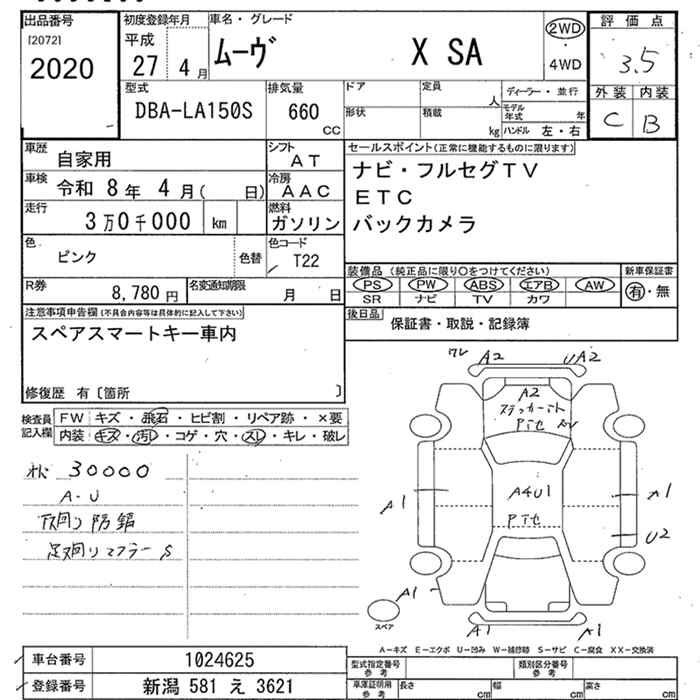 出品番号
[2072]
2020
初度登録年月
平成
27 4月
車名・グレード
ムーヴ X SA
2WD
・
4WD
評価点
3.5
外装 内装
C B
型式
DBA-LA150S
排気量
660
CC
ドア 定員 人
形状 積載 kg
ディーラー・並行
モデル年式 年
ハンドル 左・右
車歴
自家用
シフト
AT
車検
令和 8年 4月( 日)
冷房
AAC
走行
3万0千000 km
燃料
ガソリン
色
ピンク
色替
色コード
T22
R券
8,780 円
名変通知期限
月 日
セールスポイント(正常に機能するものに限ります)
ナビ・フルセグTV
ETC
バックカメラ
装備品(純正品に限り○をつけてください)
PS PW ABS エアB AW
SR ナビ TV カワ
新車保証書
有・無
後日品
保証書・取説・記録簿
注意事項申告欄(不具合内容等は具体的に記入して下さい)
スペアスマートキー車内
修復歴 有〔箇所 〕
検査員記入欄
FW キズ・飛石・ヒビ割・リペア跡・×要
内装 キズ・汚レ・コゲ・穴・スレ・キレ・破レ
30000
A-U
下廻り防錆
足廻りマフラーS
ワレ A2 UA2
A2
ステッカーアト
PTセ
A1
A4U1
PTセ
A1
U2
A1
スペア
A1 A1
A-キズ E-エクボ U-凹み W-補修跡 S-サビ C-腐食 XX-交換済
車台番号
1024625
登録番号
新潟 581 え 3621
型式指定番号
参考
類別区分番号
参考
車庫証明用
参考
長さ cm
幅 cm
高さ cm